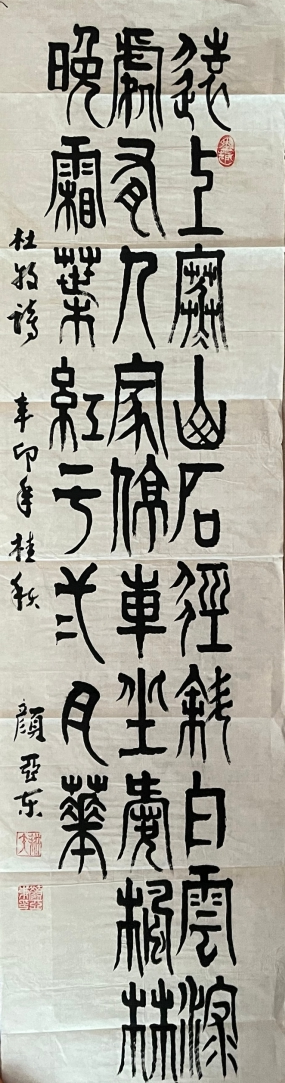 遠上寒山石徑斜白雲深
處有人家停車坐愛楓林
晚霜葉紅于弍月華
杜牧詩 辛卯年桂秋 顏亞东